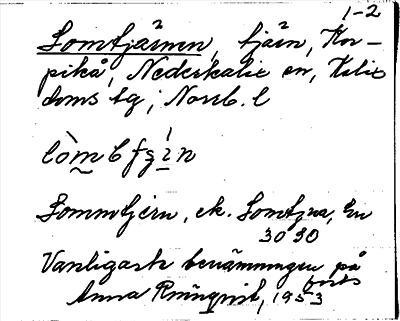 1-2
Lomtjärnen, tjärn, Kor-
pikå, Nederkalix sn, Kalix
doms tg; Norrb. l
Lommtjern, ek. Lomtjna, En
3090
Vanligaste benämningen på
forts
Anna Rönnqvist, 1953